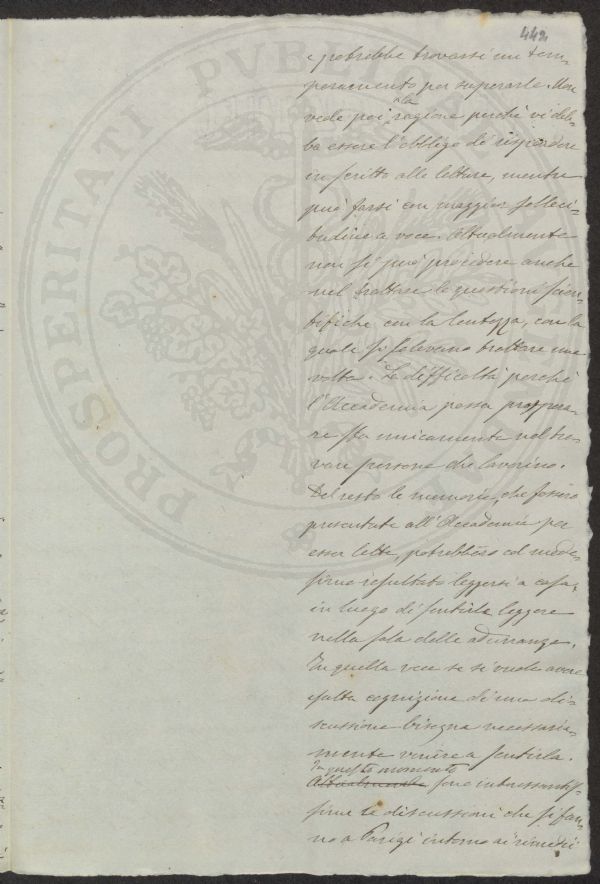 442
e potrebbe trovarsi un tem-
peramento per superarle. Non
vede poi la ragione perchè vi deb-
ba essere l'obbligo di rispondere
in scritto alle letture, mentre
può farsi con maggior solleci-
tudine a voce. Attualmente
non si può procedere anche
nel trattare le questioni scien-
tifiche con la lentezza, con la
quale si solevano trattare una
volta. La difficoltà perchè
l'Accademia possa prospera-
re sta unicamente nel tro-
vare persone che lavorino.
Del resto le memorie, che fossero
presentate all'Accademia per
esser lette, potrebbero col mede-
simo resultato leggersi a casa,
in luogo di sentirle leggere
nella sala delle adunanze.
In quella vece se si vuole avere
esatta cognizione di una di-
scussione bisogna necessaria-
mente venire a sentirla.
In questo momento
Attualmente sono interessantis-
sime le discussioni che si fan-
no a Parigi intorno ai rimedii
PROSPERITATI PUBLICAE